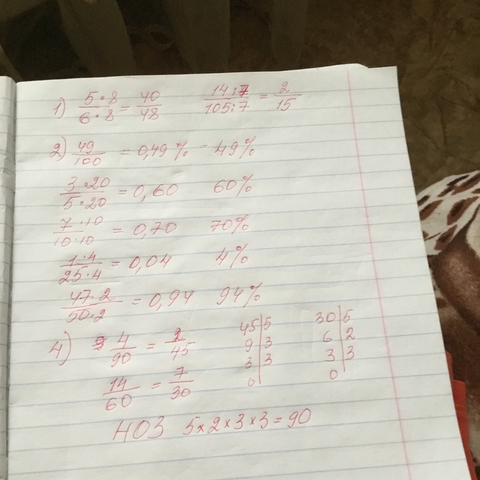 1) 5·8/6·8 = 40/48   14:7/105:7 = 2/15
2) 49/100 = 0,49% 49%
3·20/5·20 = 0,60   60%
7·10/10·10 = 0,70   70%
1·4/25·4 = 0,04   4%
47·2/50·2 = 0,94   94%
4) 4/90 = 2/45   45|5   30|5
9|3   6|2
14/60 = 7/30   3|3   3|3
0|   0|
НОЗ 5×2×3×3=90